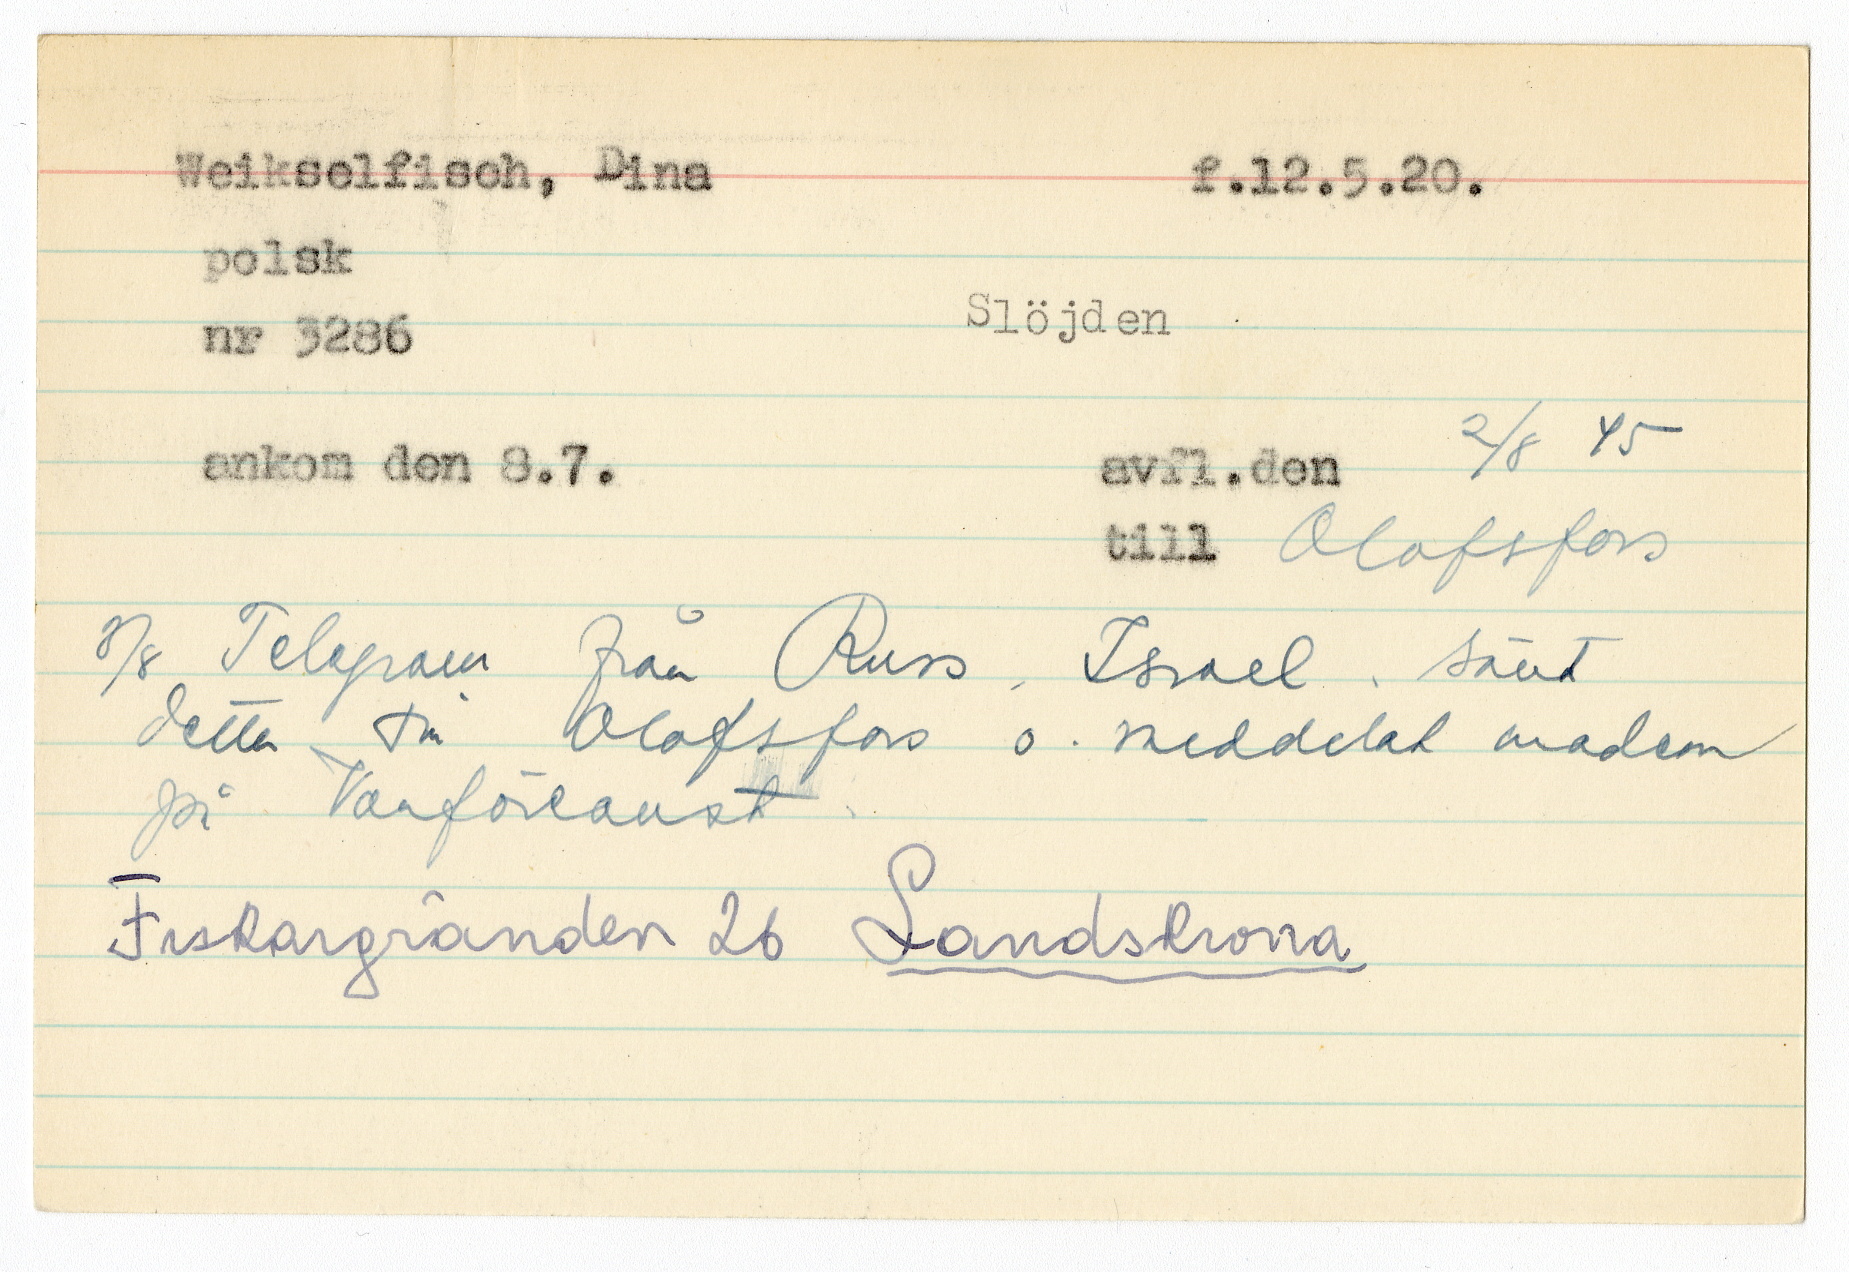 Weikselfisch, Dina f.12.5.20.
polsk
nr 3286 Slöjden
ankom den 8.7. avfl.den 2/8 45
till Olofsfors
/8 Telegram från Russ, Israel. Sänt
detta till Olofsfors o. meddelat
på
Fiskargränden 26 Landskrona